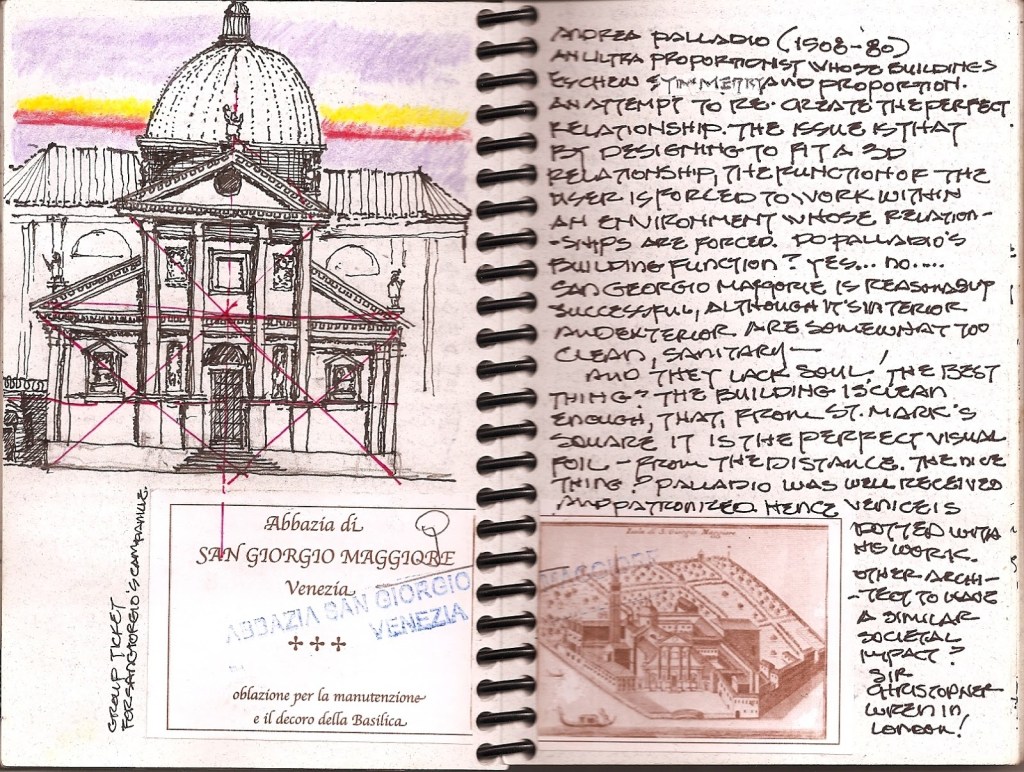 ANDREA PALLADIO (1508-'80)
AN ULTRA PROPORTIONIST WHOSE BUILDINGS
ESCHEW SYMMETRY AND PROPORTION.
AN ATTEMPT TO RE-CREATE THE PERFECT
RELATIONSHIP. THE ISSUE IS THAT
BY DESIGNING TO FIT A 3D
RELATIONSHIP, THE FUNCTION OF THE
USER IS FORCED TO WORK WITHIN
AN ENVIRONMENT WHOSE RELATION-
-SHIPS ARE FORCED. DO PALLADIO'S
BUILDING FUNCTION? YES... NO....
SAN GEORGIO MAGGORIE IS REASONABLY
SUCCESSFUL, ALTHOUGH IT'S INTERIOR
AND EXTERIOR ARE SOMEWHAT TOO
CLEAN, SANITARY—
AND THEY LACK SOUL! THE BEST
THING? THE BUILDING IS CLEAN
ENOUGH, THAT, FROM ST. MARK'S
SQUARE IT IS THE PERFECT VISUAL
FOIL - FROM THE DISTANCE. THE NICE
THING? PALLADIO WAS WELL RECEIVED
AND PATRONIZED. HENCE VENICE IS
DOTTED WITH
HIS WORK.
OTHER ARCHI-
-TECT TO HAVE
A SIMILAR
SOCIETAL
IMPACT?
SIR
CHRISTOPHER
WREN IN
LONDON!
GROUP TICKET
FOR SAN GIORGIO'S CAMPANILE.
Abbazia di
SAN GIORGIO MAGGIORE
Venezia
ABBAZIA SAN GIORGIO MAGGIORE
VENEZIA
oblazione per la manutenzione
e il decoro della Basilica
Isola di S. Giorgio Maggiore